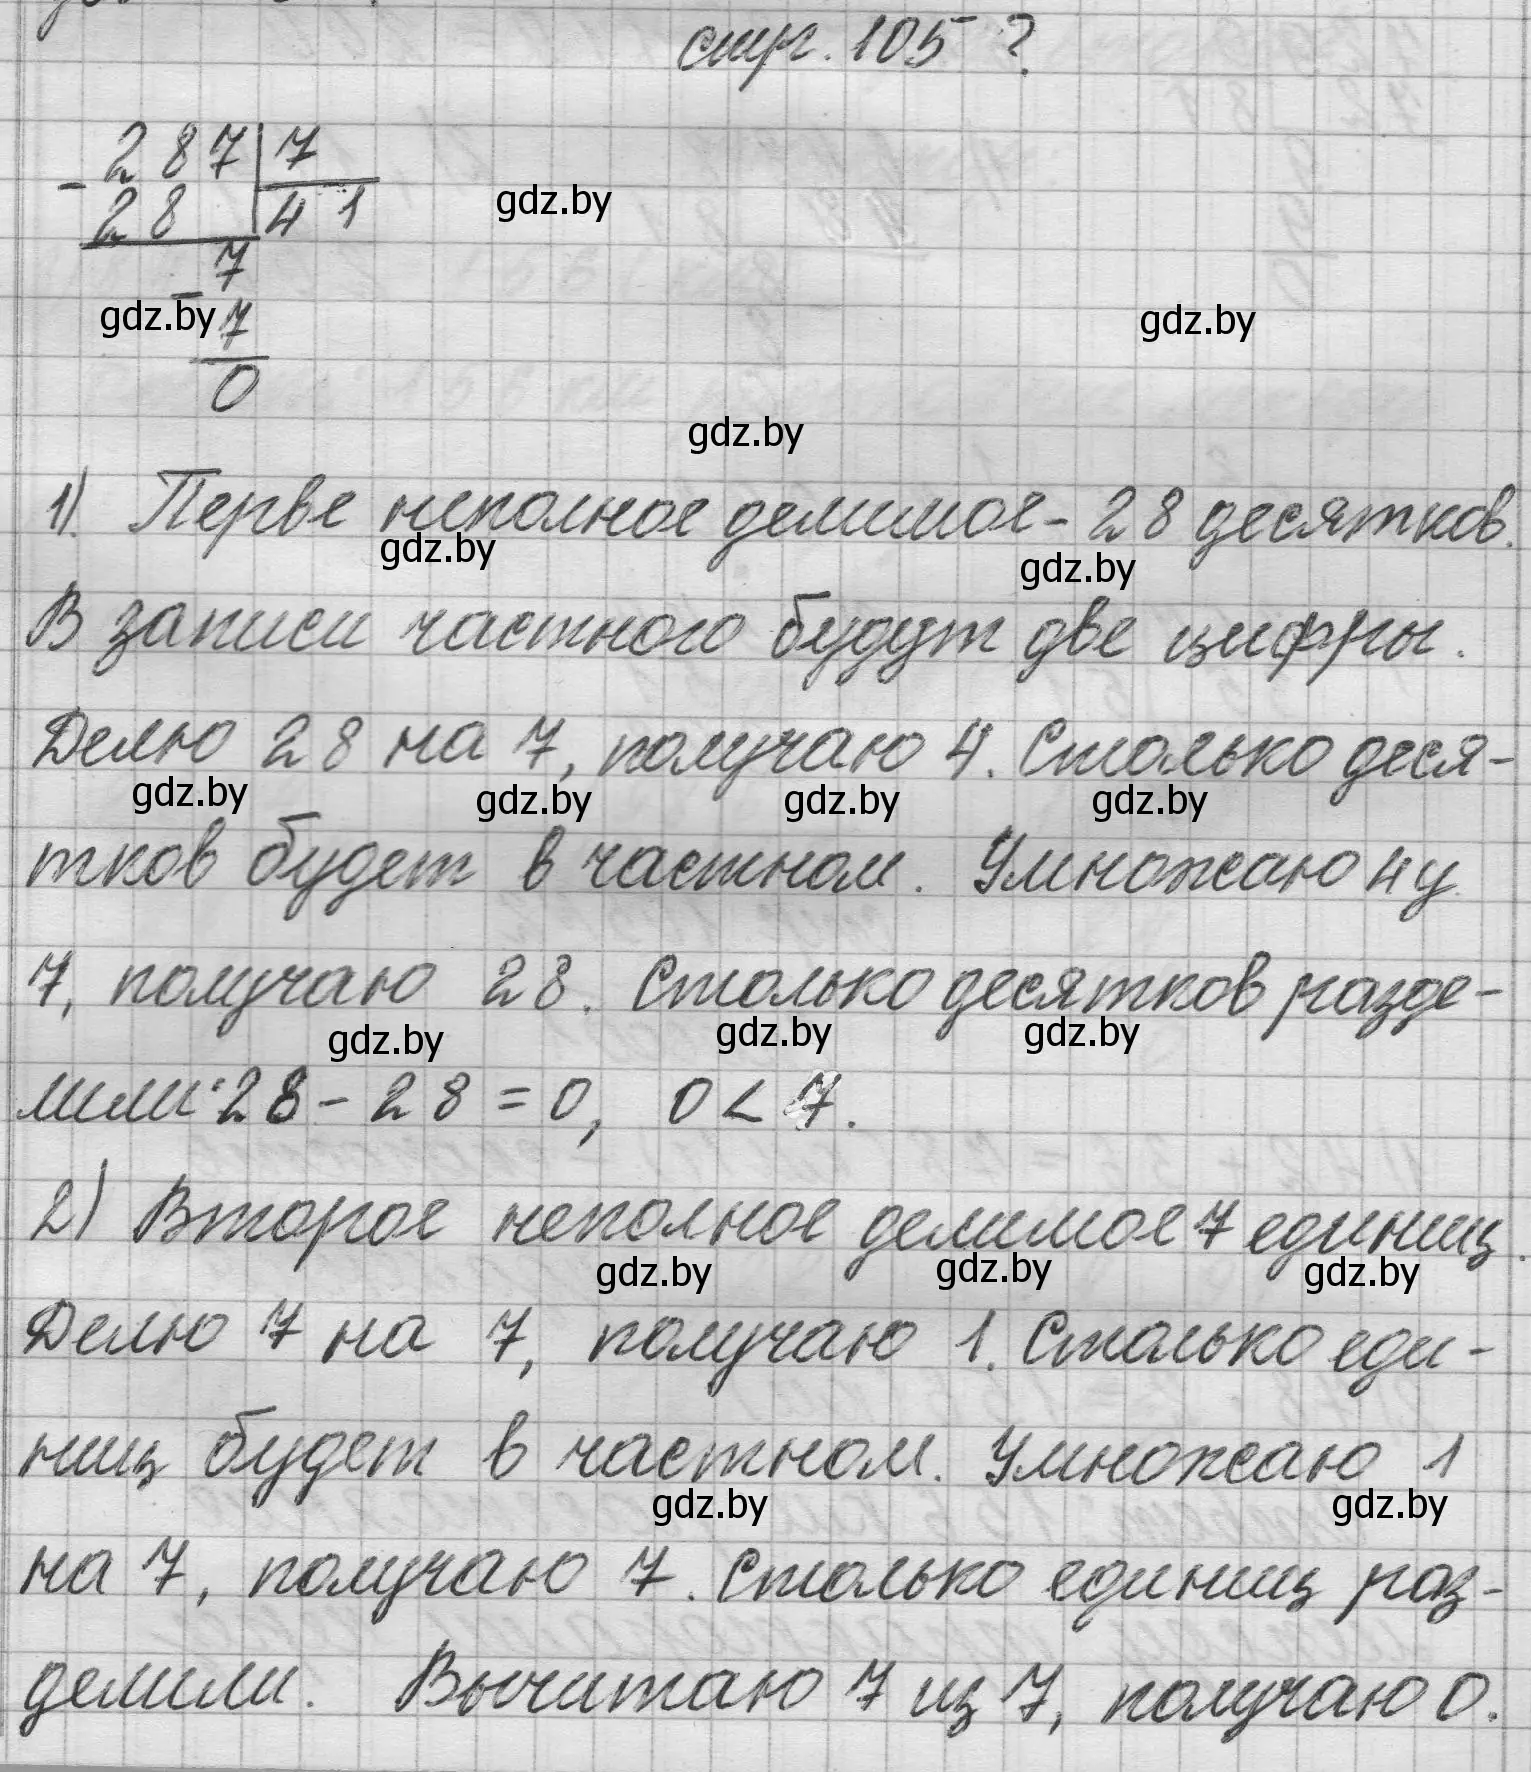 стр. 105 ?
- 287 | 7
28 | 41
7
- 7
0
gdz.by
gdz.by
gdz.by
gdz.by
1). Перве неполное делимое - 28 десятков.
gdz.by gdz.by
В записи частного будут две цифры.
Делю 28 на 7, получаю 4. Столько деся-
gdz.by gdz.by gdz.by gdz.by
тков будет в частном. Умножаю 4 у
7, получаю 28. Столько десятков разде-
gdz.by gdz.by gdz.by
лили: 28 - 28 = 0, 0 < 7.
2) Второе неполное делимое 7 единиц.
gdz.by gdz.by gdz.by
Делю 7 на 7, получаю 1. Столько еди-
ниц будет в частном. Умножаю 1
gdz.by gdz.by
на 7, получаю 7. Столько единиц раз-
делили. Вычитаю 7 из 7, получаю 0.